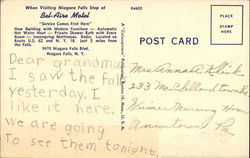 When Visiting Niagara Falls Stop at
Bel-Aire Motel
"Service Comes First Here"
New Building with Modern Furniture — Automatic
Hot Water Heat — Private Shower Bath with Every
Room — Innerspring Mattresses. Radio. Located on
Routes U.S. 62 and N. Y. 18. Just 5 miles from
the Falls.
9470 Niagara Falls Blvd.
Niagara Falls, N. Y.
K4602
POST CARD
Dear grandma
I saw the fall
yesterday. I
like it here.
we are going
To see them tonight.
Mrs Annah
233
Nursing Home
Pa